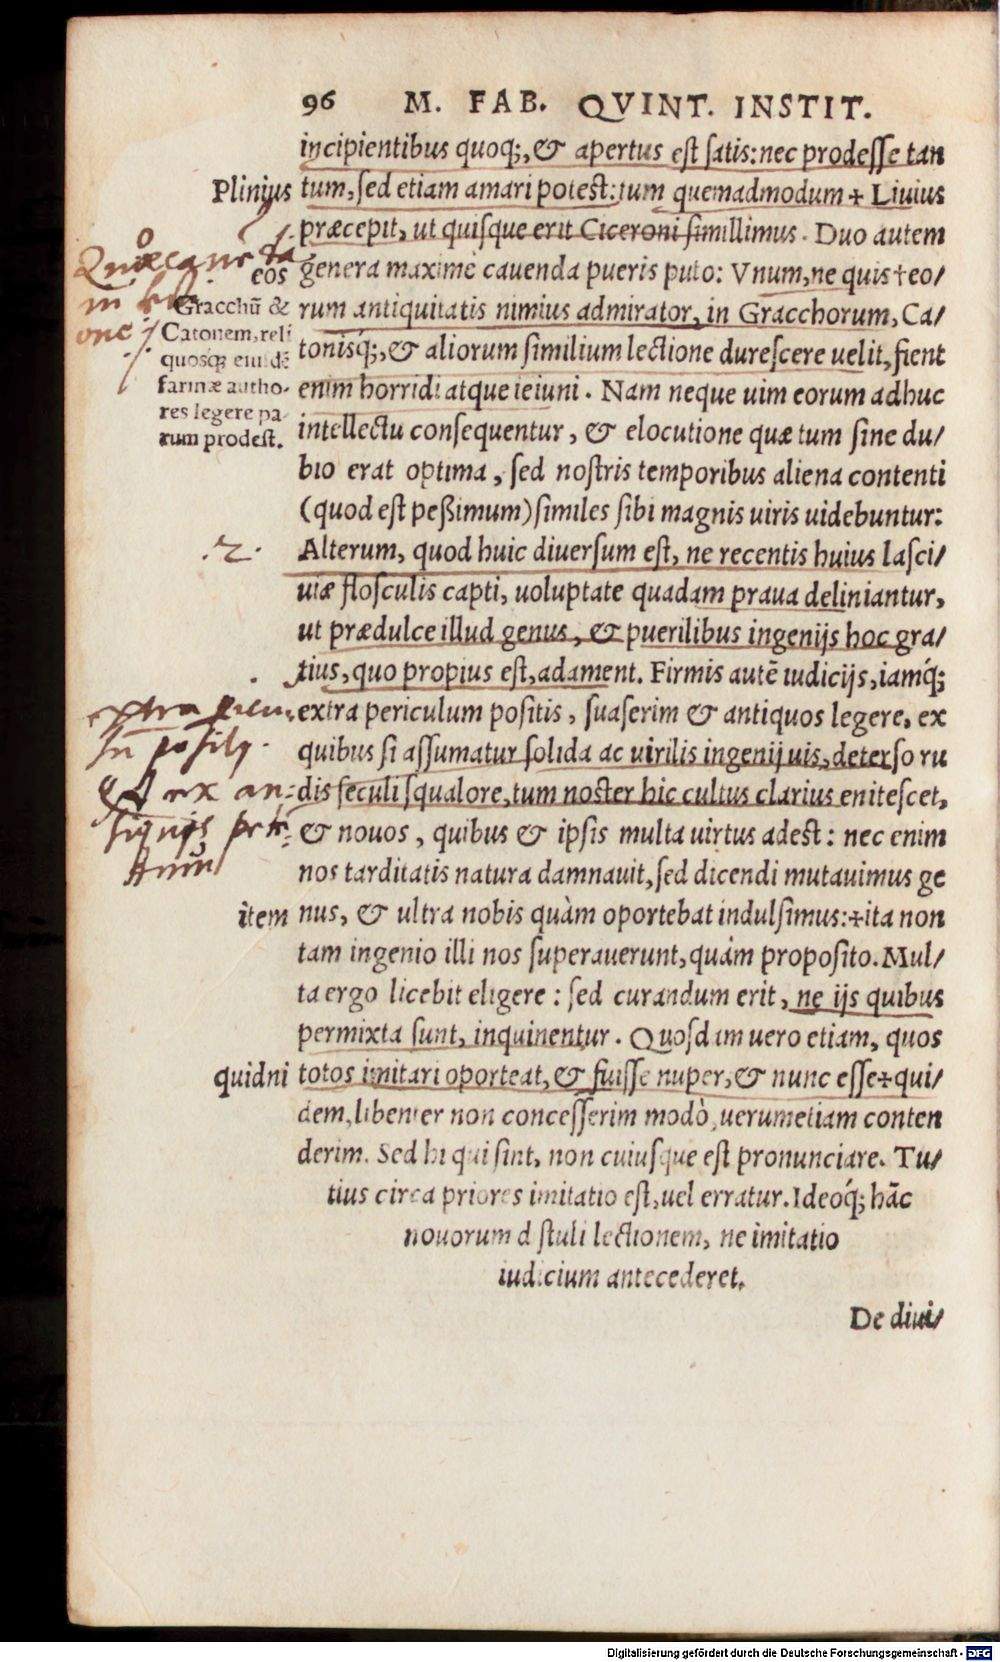 96 M. FAB. QVINT. INSTIT.
incipientibus quoq;, & apertus est satis: nec prodesse tan
Plinius
tum, sed etiam amari potest: tum quemadmodum + Liuius
præcepit, ut quisque erit Ciceroni simillimus. Duo autem
eos
genera maximè cauenda pueris puto: Vnum, ne quis † eo/
Gracchū &
Catonem, reli
quosq; eiusdē
farinæ autho-
res legere pa-
rum prodest.
rum antiquitatis nimius admirator, in Gracchorum, Ca/
tonisq́;, & aliorum similium lectione durescere uelit, fient
enim horridi atque ieiuni. Nam neque uim eorum adhuc
intellectu consequentur, & elocutione quæ tum sine du/
bio erat optima, sed nostris temporibus aliena contenti
(quod est peßimum) similes sibi magnis uiris uidebuntur:
.2.
Alterum, quod huic diuersum est, ne recentis huius lasci/
uiæ flosculis capti, uoluptate quadam praua deliniantur,
ut prædulce illud genus, & puerilibus ingenijs hoc gra/
tius, quo propius est, adament. Firmis autē iudicijs, iamq́;
extra
extra periculum positis, suaserim & antiquos legere, ex
quibus si assumatur solida ac uirilis ingenij uis, deterso ru
ex an-
dis seculi squalore, tum noster hic cultus clarius enitescet,
& nouos, quibus & ipsis multa uirtus adest: nec enim
nos tarditatis natura damnauit, sed dicendi mutauimus ge
item
nus, & ultra nobis quàm oportebat indulsimus: + ita non
tam ingenio illi nos superauerunt, quàm proposito. Mul/
ta ergo licebit eligere: sed curandum erit, ne ijs quibus
permixta sunt, inquinentur. Quosdam uero etiam, quos
quidni
totos imitari oporteat, & fuisse nuper, & nunc esse + qui/
dem, libenter non concesserim modò, uerumetiam conten
derim. Sed hi qui sint, non cuiusque est pronunciare. Tu/
tius circa priores imitatio est, uel erratur. Ideoq́; hāc
nouorum d stuli lectionem, ne imitatio
iudicium antecederet.
De diui/
Digitalisierung gefördert durch die Deutsche Forschungsgemeinschaft - DFG